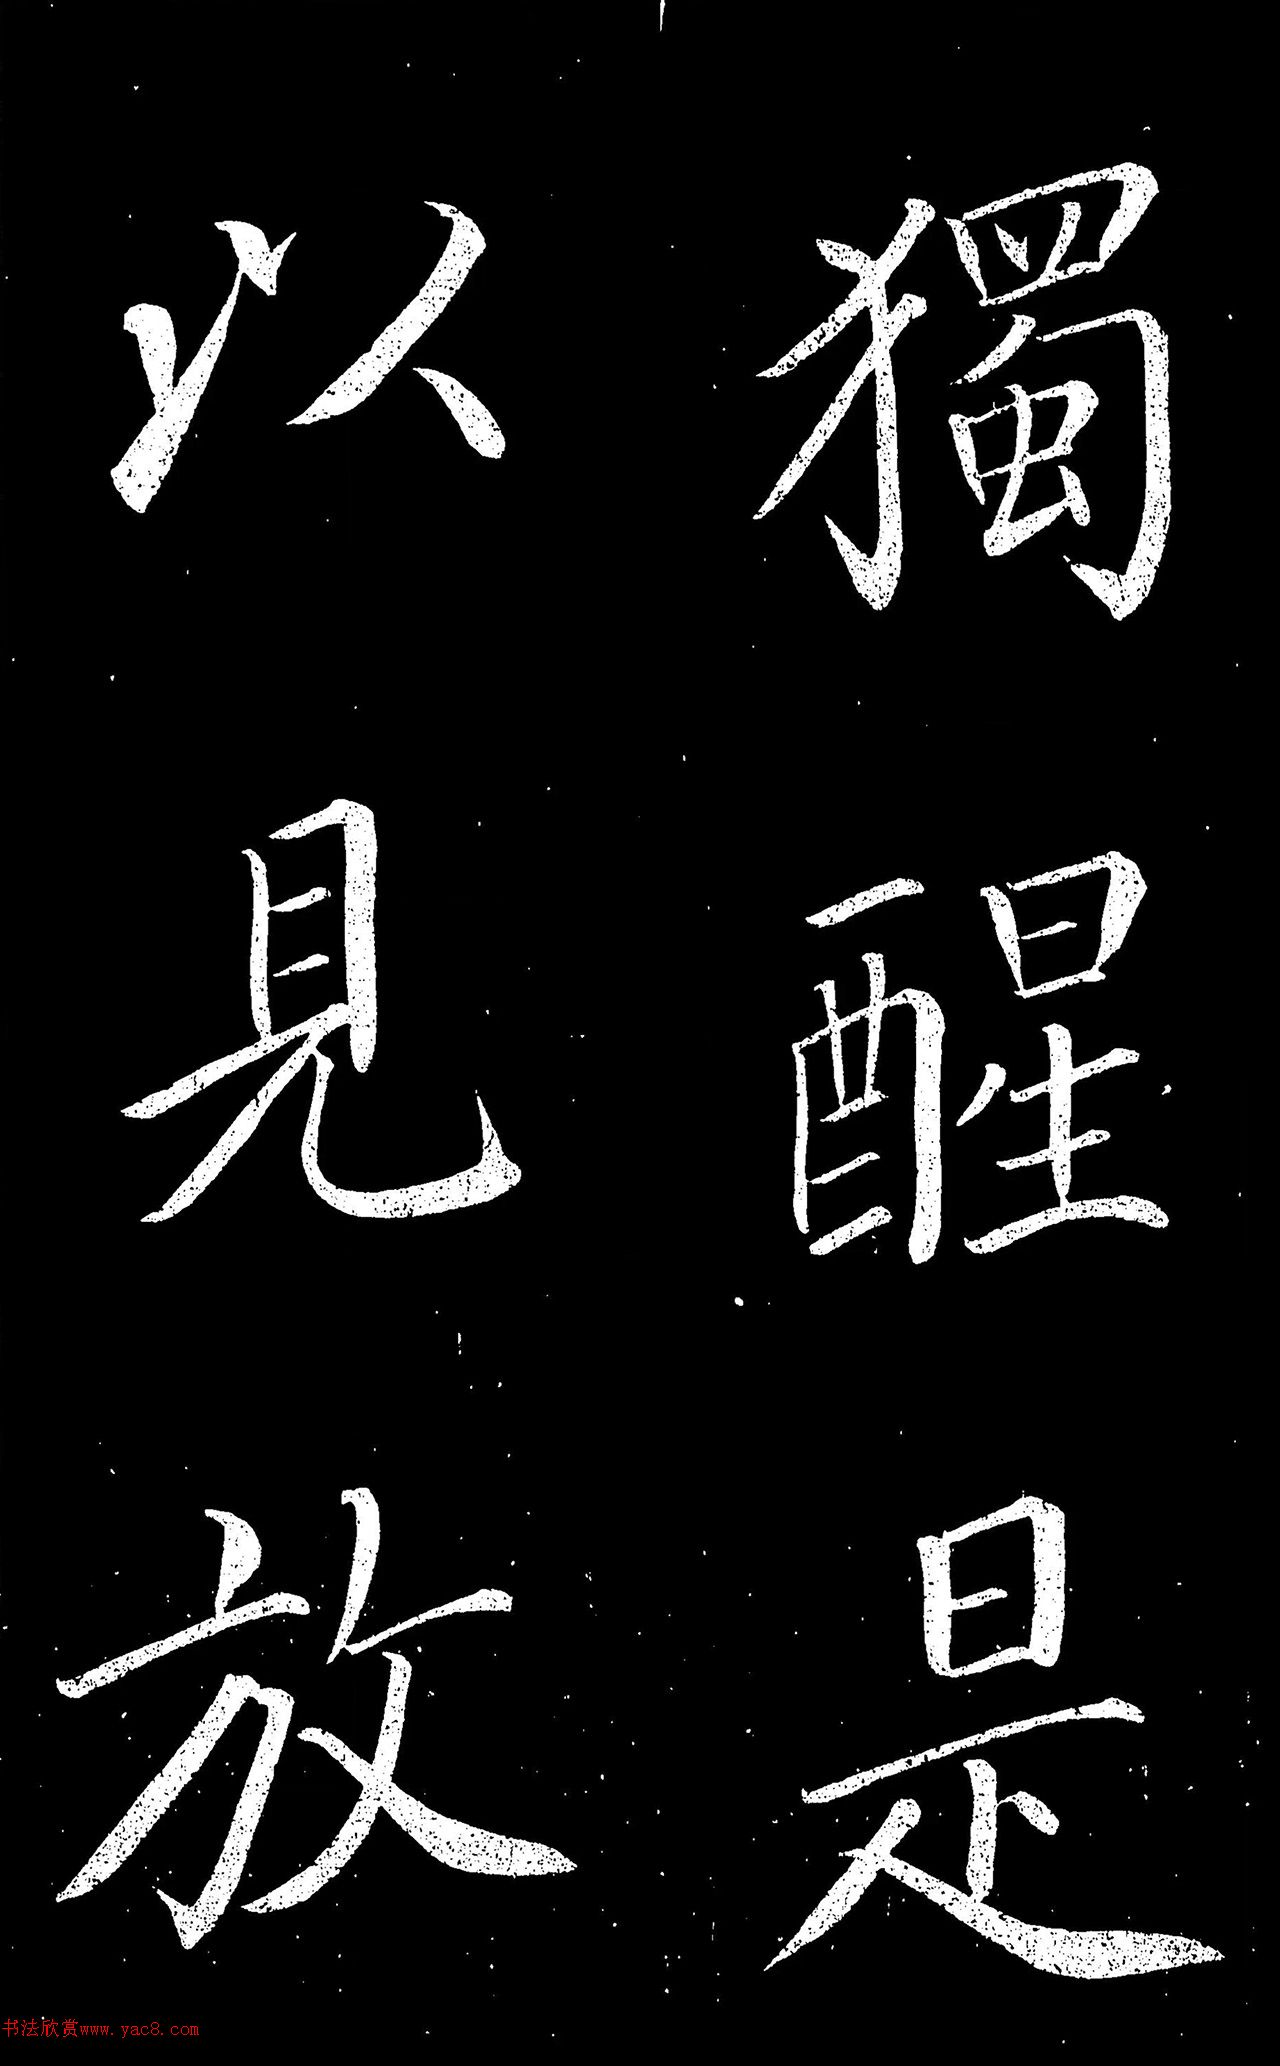 獨醒是
以見放
书法欣赏www.yac8.com